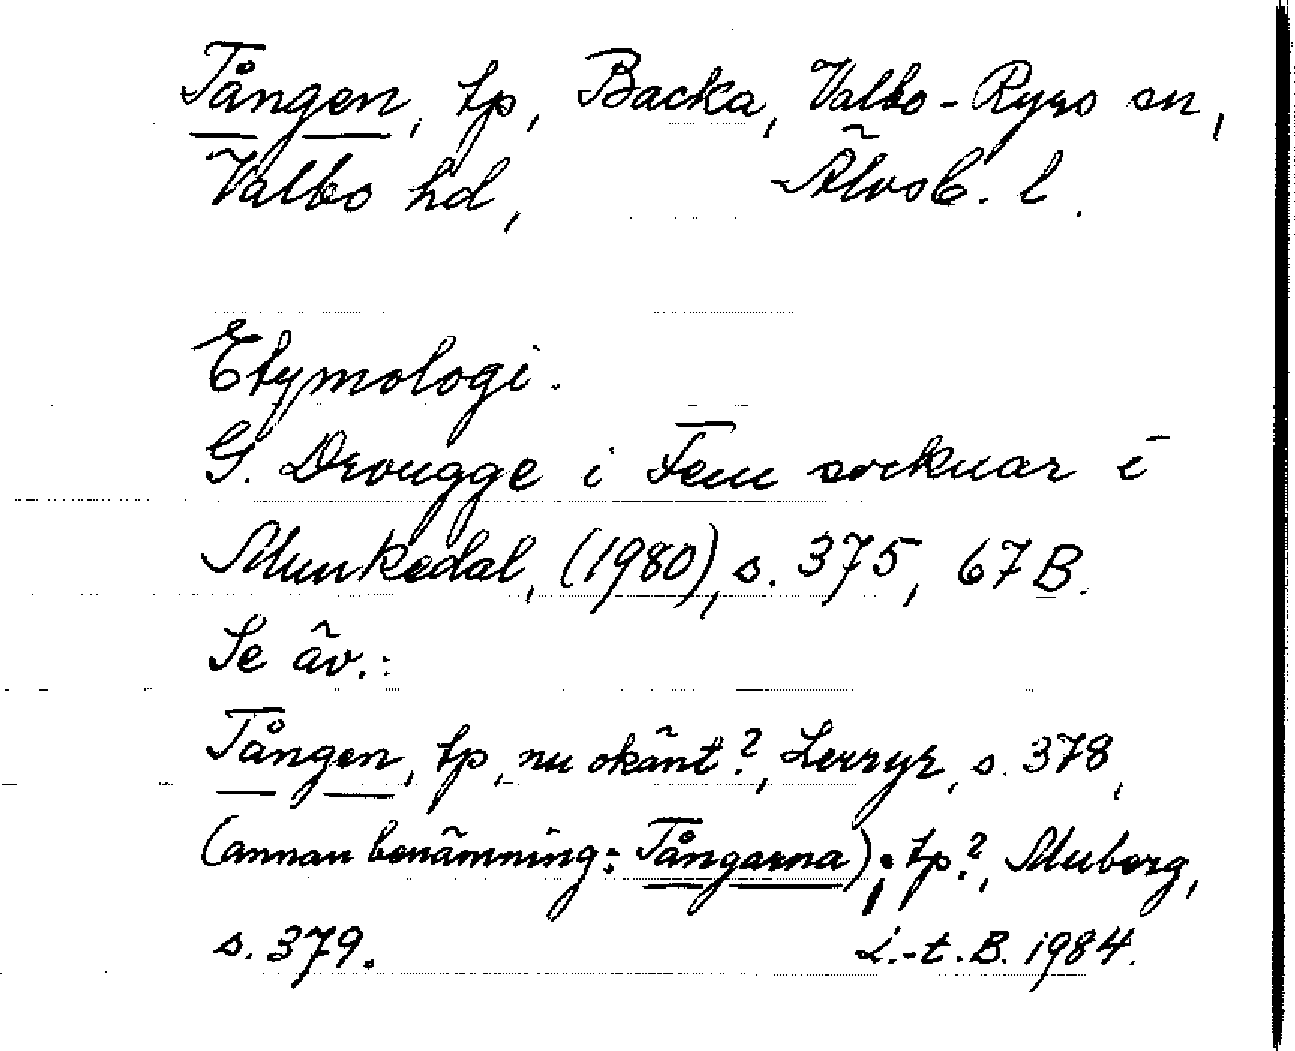 Tången, tp, Backa, Valbo-Ryrs sn,
Valbo hd, Älvsb. l.
Etymologi.
G. Drougge i Fem socknar i
Munkedal, (1980), s. 375, 67 B.
Se äv.:
Tången, tp, nu okänt?, Lerryr, s. 378,
(annan benämning: Tångarna); tp?, Muberg,
s. 379. L.-t. B. 1984.